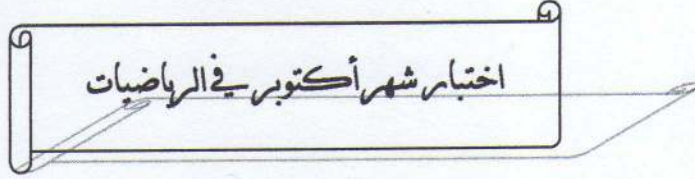 اختبار شهر أكتوبر في الرياضيات